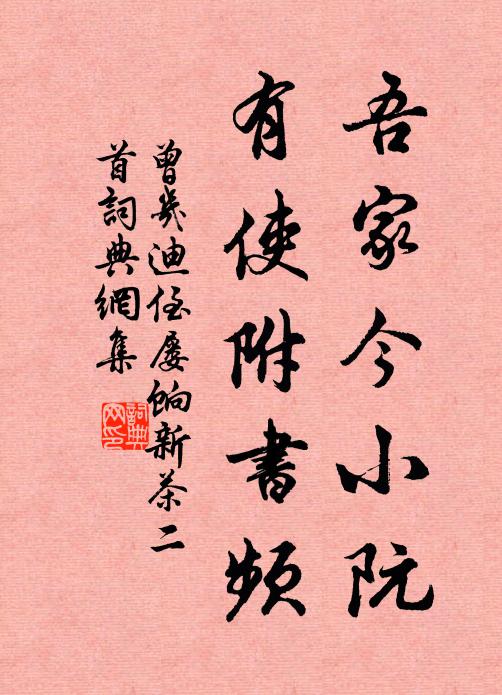 吾家今小阮
有使附書頻
曾幾迪侄屢餉新茶二
首詞典網集
詞典
网印